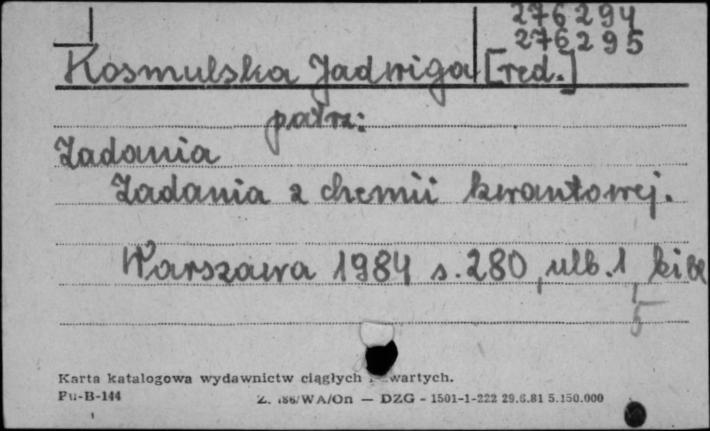 276294
276295
Kosmulska Jadwiga [red.]
patrz:
Zadania
Zadania z chemii kwantowej.
Warszawa 1984 s. 280, ulb. 1,
5
Karta katalogowa wydawnictw ciągłych i zwartych.
Pu-B-144 Z. 186/WA/On — DZG - 1501-1-222 29.6.81 5.150.000